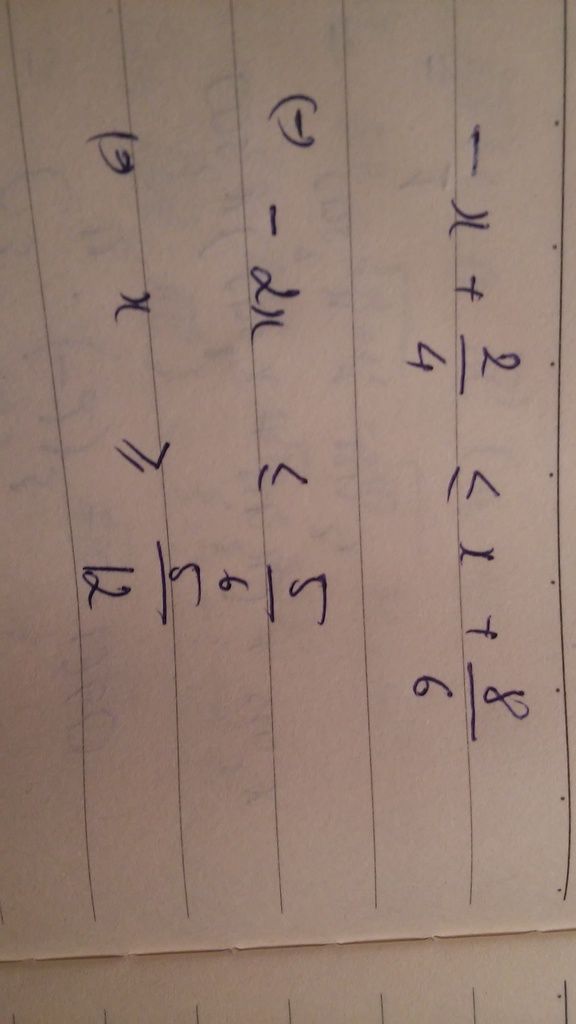 - x + 2/4 ≤ x + 8/6
(-) - 2x ≤ 5/6
x ≥ 5/12